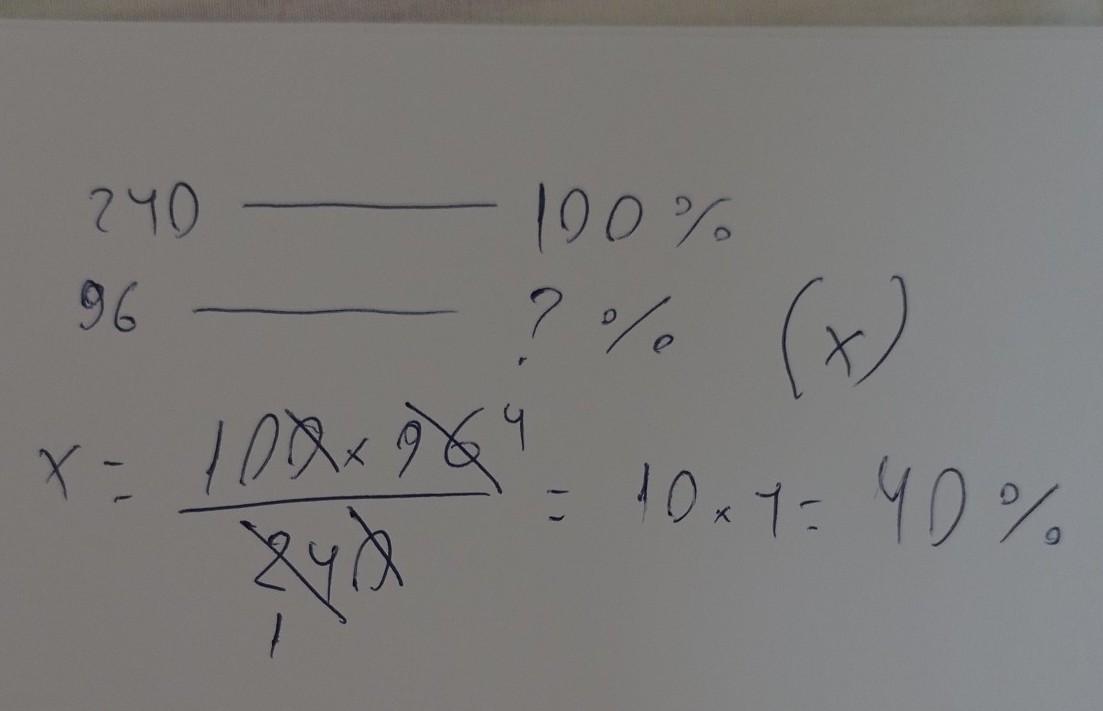 240 ——— 100%
96 ——— ?% (x)
x = 100 x 96 4 / 240 1 = 10 x 4 = 40%